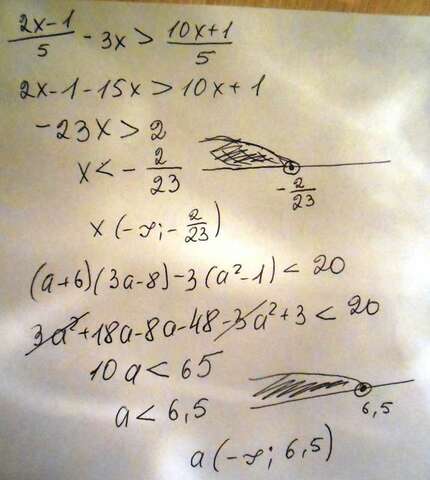 (2x-1)/5 - 3x > (10x+1)/5
2x-1-15x > 10x+1
-23x > 2
x < - 2/23
- 2/23
x (-∞; - 2/23)
(a+6)(3a-8)-3(a²-1) < 20
3a²+18a-8a-48-3a²+3 < 20
10a < 65
a < 6,5
6,5
a (-∞; 6,5)